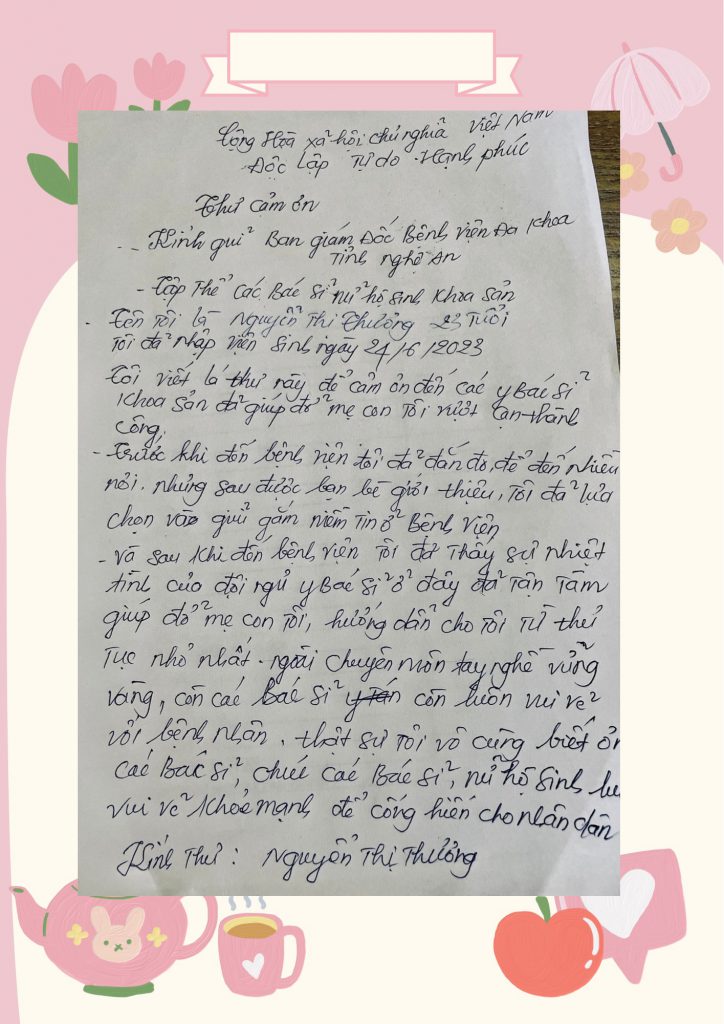 Cộng Hòa xã hội chủ nghĩa Việt Nam
Độc Lập Tự do Hạnh phúc
Thư cảm ơn
- Kính gửi Ban giám Đốc Bệnh viện Đa Khoa
Tỉnh nghệ An
- Tập Thể Các Bác Sĩ nữ hộ sinh Khoa Sản
- Tên Tôi là Nguyễn Thị Thương 23 Tuổi
Tôi đã nhập viện Sinh ngày 24/6/2023
Tôi viết lá thư này để cảm ơn đến các y Bác Sĩ
Khoa Sản đã giúp đỡ mẹ con Tôi vượt cạn thành
công.
- Trước khi đến bệnh viện tôi đã đắn đo, để đến nhiều
nơi. nhưng sau được bạn bè giới thiệu, Tôi đã lựa
chọn vào giữ gắm niềm Tin ở Bệnh Viện
- Và sau khi đến bệnh viện Tôi đã Thấy sự nhiệt
tình của đội ngủ y Bác Sĩ ở đây đã Tận Tâm
giúp đỡ mẹ con Tôi, hướng dẫn cho Tôi Từ thủ
Tục nhỏ nhất. ngoài chuyên môn tay nghề vững
vàng, còn các Bác Sĩ còn luôn vui vẻ
với bệnh nhân. thật sự Tôi vô cùng biết ơn
các Bác Sĩ, chúc các Bác Sĩ, nữ hộ Sinh
vui vẻ khỏe mạnh để cống hiến cho nhân dân
Kính Thư: Nguyễn Thị Thương